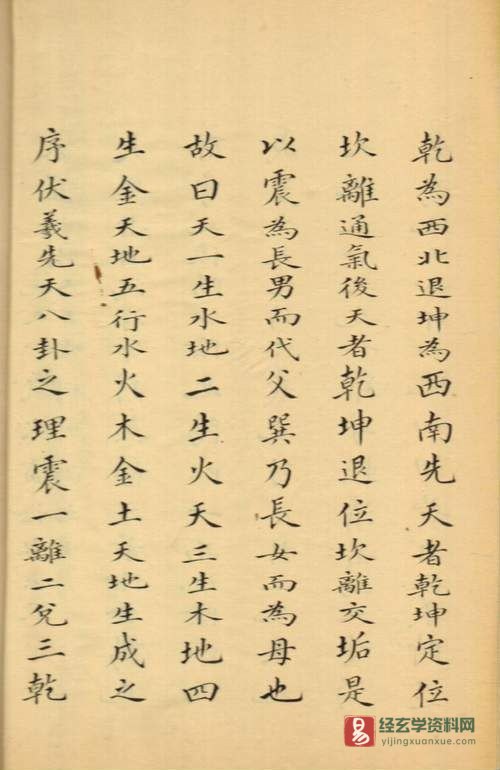 乾為西北退坤為西南先天者乾坤定位
坎離通氣後天者乾坤退位坎離交垢是
以震為長男而代父巽乃長女而為母也
故曰天一生水地二生火天三生木地四
生金天地五行水火木金土天地生成之
序伏羲先天八卦之理震一離二兌三乾
易
经玄学资料网
yijingxuanxue.com